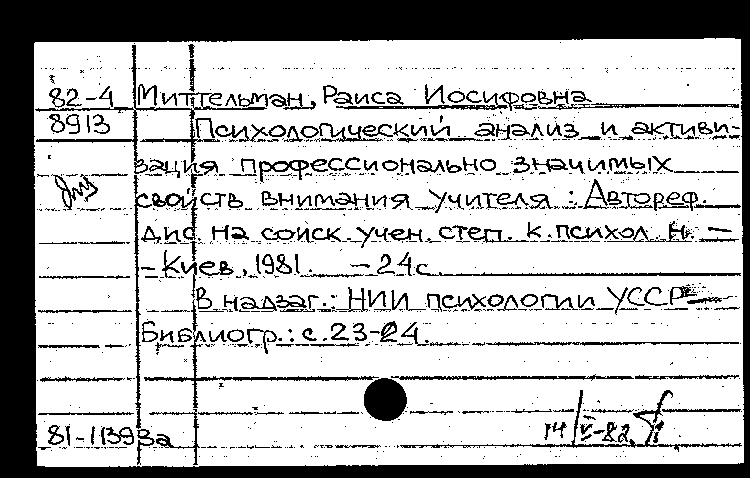 82-4 Миттельман, Раиса Иосифовна
8913 Психологический анализ и активи-
зация профессионально значимых
свойств внимания учителя : Автореф.
дис. на соиск. учен. степ. к. психол. н. —
- Киев, 1981. — 24 с.
В надзаг.: НИИ психологии УССР —
Библиогр.: с. 23-24.
14/V-82.
81-11393а